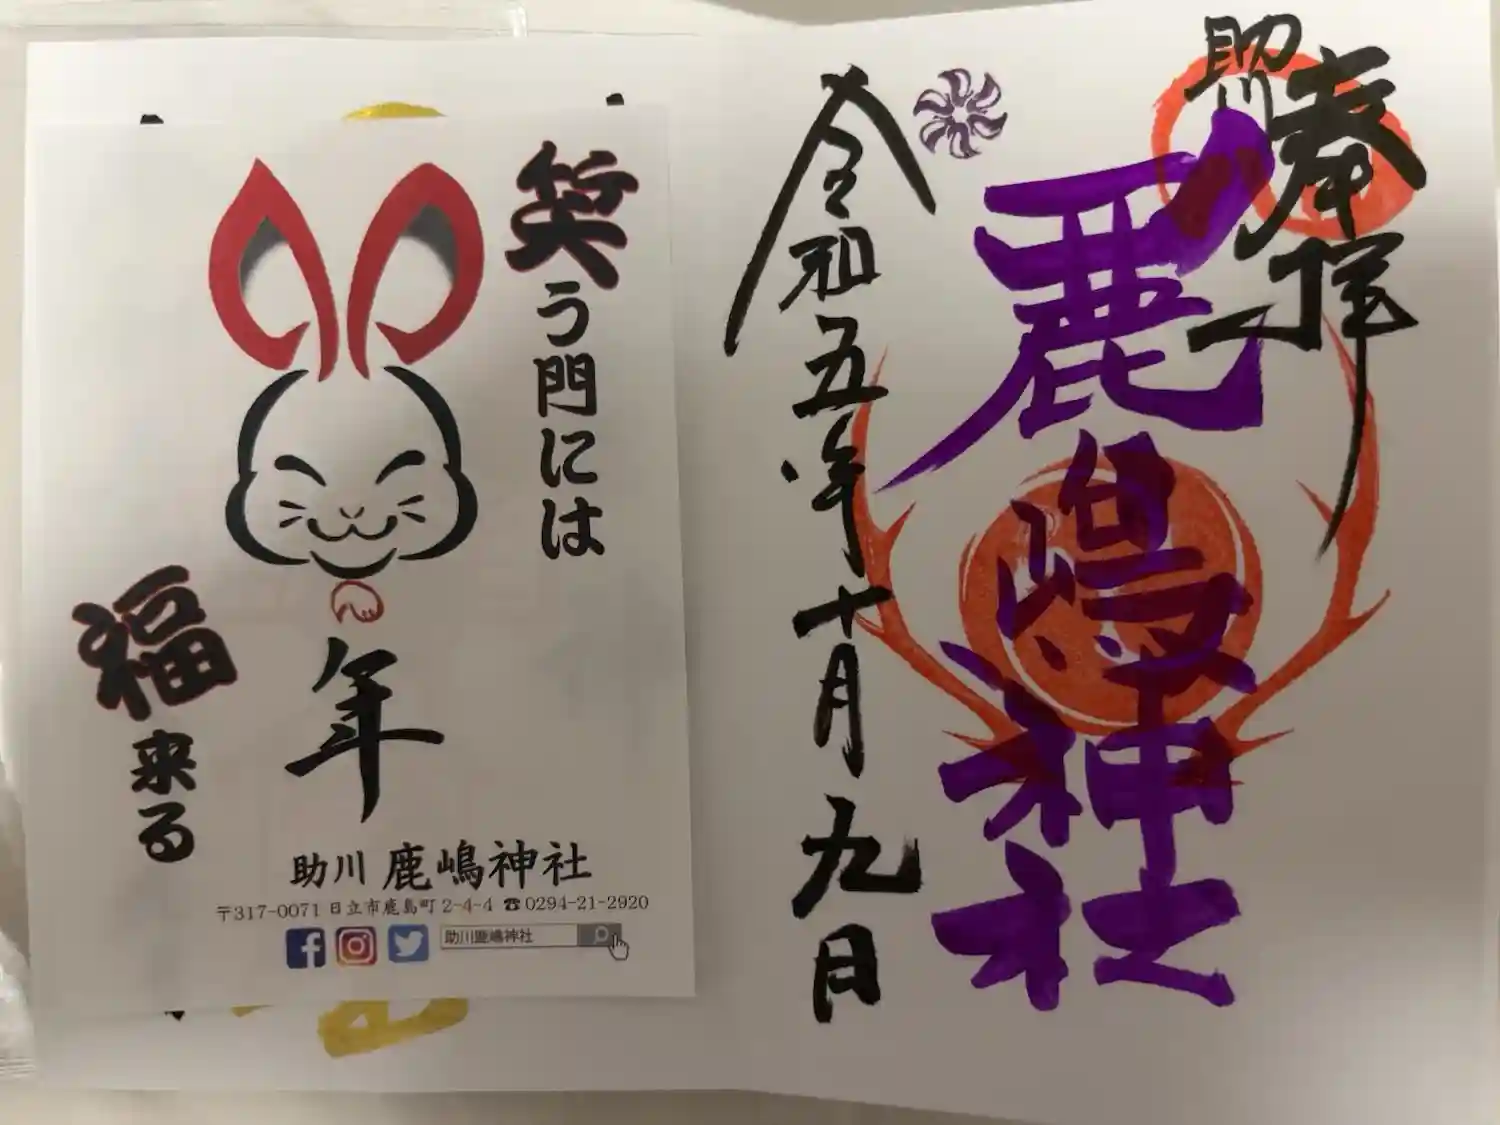 奉拝
助川
鹿嶋神社
令和五年十月九日
笑う門には
福来る
年
助川 鹿嶋神社
〒317-0071 日立市鹿島町 2-4-4 ☎0294-21-2920
助川鹿嶋神社